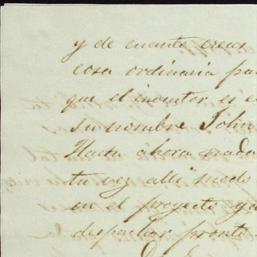 y de cuanto creas
cosa ordinaria pa
que el inventor es e
su nombre John
Hasta ahora nada
tu vez alli modo
en el proyecto y a
despachar pronto